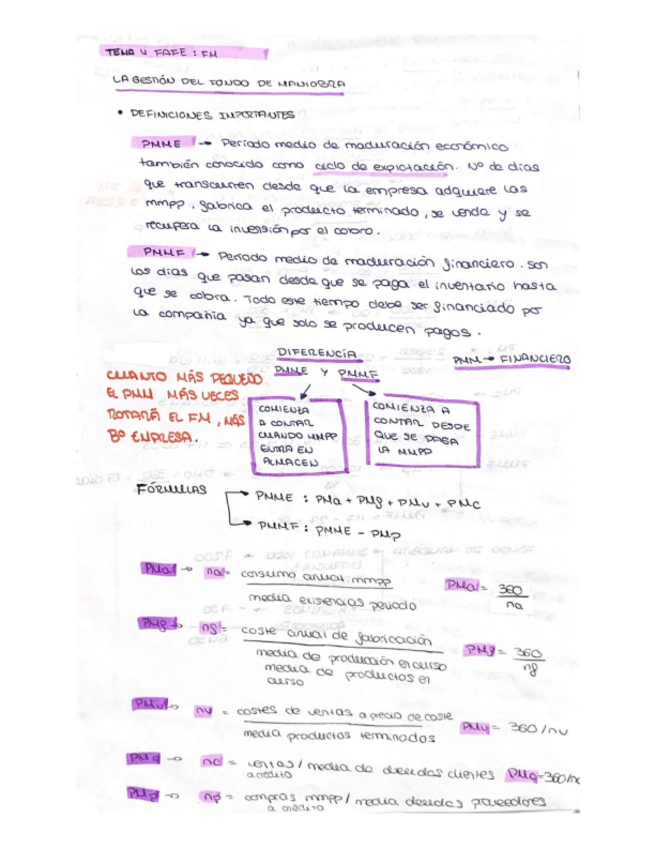 TEMA 4 FAFE : FM
LA GESTIÓN DEL FONDO DE MANIOBRA
• DEFINICIONES IMPORTANTES
PMME → Periodo medio de maduración económico
también conocido como ciclo de explotación. Nº de días
que transcurren desde que la empresa adquiere las
mmpp, fabrica el producto terminado, se vende y se
recupera la inversión por el cobro.
PMMF → Periodo medio de maduración financiero. son
los días que pasan desde que se paga el inventario hasta
que se cobra. Todo este tiempo debe ser financiado por
la compañia ya que solo se producen pagos.
DIFERENCIA
PMME Y PMMF
PMM → FINANCIERO
CUANTO MÁS PEQUEÑO
EL PMM MÁS VECES
ROTARÁ EL FM, MÁS
Bº EMPRESA.
COMIENZA
A CONTAR
CUANDO MMPP
ENTRA EN
ALMACEN
COMIENZA A
CONTAR DESDE
QUE SE PAGA
LA MMPP
FÓRMULAS
PMME : PMa + PMf + PMv + PMc
PMMF : PMME - PMp
PMa → na = consumo anual mmpp
media existencias periodo
PMa = 360
na
PMf → nf = coste anual de fabricación
media de producción en curso
media de productos en
curso
PMf = 360
nf
PMv → nv = costes de ventas a precio de coste
media productos terminados
PMv = 360/nv
→ nc = ventas / media de deudas clientes
a crédito
= 360/nc
→ np = compras mmpp / media deudas proveedores
a crédito